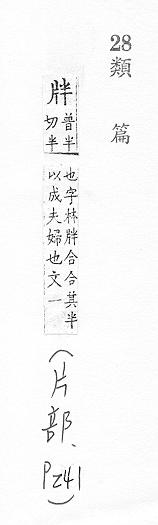 28 類篇
牉
普半
切半
也字林牉合合其半
以成夫婦也文一
(片部、P241)